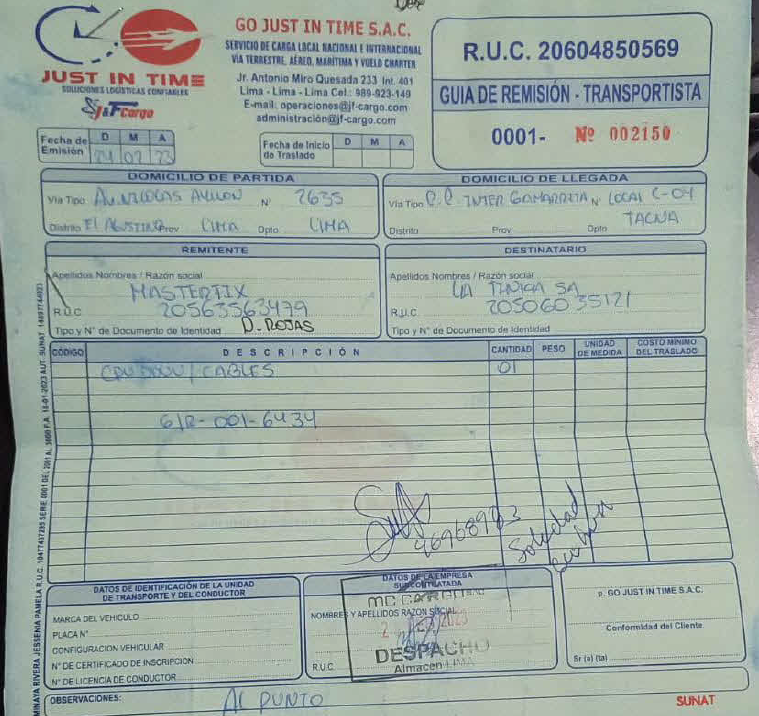 JUST IN TIME
SOLUCIONES LOGÍSTICAS CONFIABLES
J&F Cargo
GO JUST IN TIME S.A.C.
SERVICIO DE CARGA LOCAL NACIONAL E INTERNACIONAL
VÍA TERRESTRE, AÉREO, MARÍTIMA Y VUELO CHARTER
Jr. Antonio Miro Quesada 233 Int. 401
Lima - Lima - Lima Cel.: 989-923-149
E-mail: operaciones@jf-cargo.com
administración@jf-cargo.com
R.U.C. 20604850569
GUIA DE REMISIÓN - TRANSPORTISTA
0001- Nº 002150
Fecha de Emisión D M A
Fecha de Inicio de Traslado D M A
DOMICILIO DE PARTIDA
Vía Tipo Av. NICOLAS AYLLON Nº 2635
Distrito EL AGUSTINO Prov LIMA Dpto LIMA
DOMICILIO DE LLEGADA
Vía Tipo C.C. INTER GAMARRITA Nº LOCAL C-04
Distrito Prov Dpto TACNA
REMITENTE
Apellidos Nombres / Razón social
MASTERTIX
R.U.C 20563563479
Tipo y Nº de Documento de Identidad D. ROJAS
DESTINATARIO
Apellidos Nombres / Razón social
LA TINKA SA
R.U.C. 20506035121
Tipo y Nº de Documento de Identidad
CÓDIGO DESCRIPCIÓN CANTIDAD PESO UNIDAD DE MEDIDA COSTO MÍNIMO DEL TRASLADO
CABLES 01
G/R-001-6434
Soledad
DATOS DE IDENTIFICACIÓN DE LA UNIDAD
DE TRANSPORTE Y DEL CONDUCTOR
MARCA DEL VEHICULO
PLACA Nº
CONFIGURACION VEHICULAR
Nº DE CERTIFICADO DE INSCRIPCION
Nº DE LICENCIA DE CONDUCTOR
DATOS DE LA EMPRESA
SUBCONTRATADA
NOMBRES Y APELLIDOS RAZON SOCIAL
R.U.C.
MC CARGO
DESPACHO
Almacen LIMA
p. GO JUST IN TIME S.A.C.
Conformidad del Cliente
Sr (a) (ta)
OBSERVACIONES: AL PUNTO
SUNAT